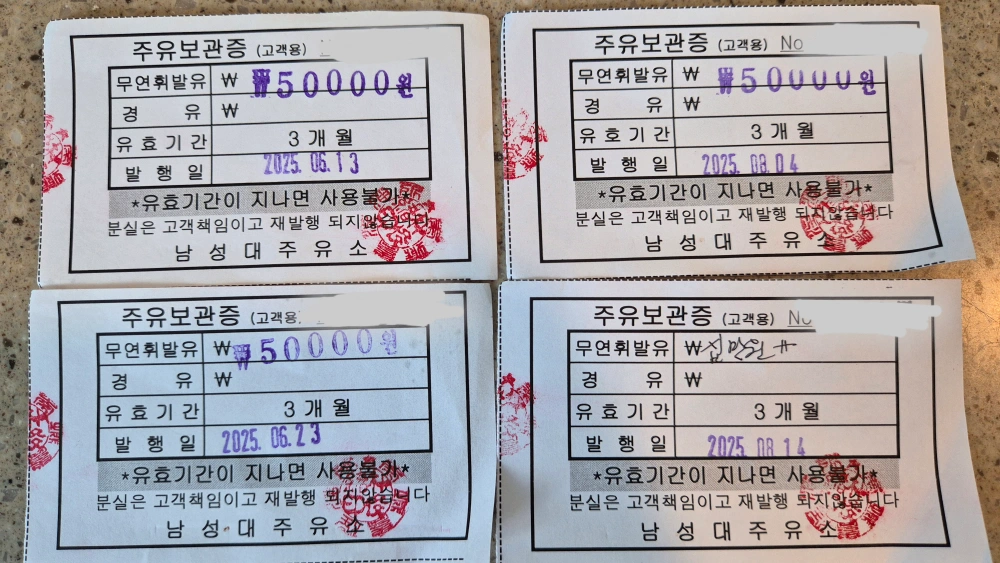 주유보관증 (고객용)
무연휘발유 ₩ ₩50000원
경 유 ₩
유효기간 3개월
발행일 2025. 06. 13
*유효기간이 지나면 사용불가*
분실은 고객책임이고 재발행 되지않습니다
남성대주유소
주유보관증 (고객용) No
무연휘발유 ₩ ₩50000원
경 유 ₩
유효기간 3개월
발행일 2025. 08. 04
*유효기간이 지나면 사용불가*
분실은 고객책임이고 재발행 되지않습니다
남성대주유소
주유보관증 (고객용)
무연휘발유 ₩ ₩50000원
경 유 ₩
유효기간 3개월
발행일 2025. 06. 23
*유효기간이 지나면 사용불가*
분실은 고객책임이고 재발행 되지않습니다
남성대주유소
주유보관증 (고객용) No
무연휘발유 ₩
경 유 ₩
유효기간 3개월
발행일 2025. 08. 14
*유효기간이 지나면 사용불가*
분실은 고객책임이고 재발행 되지않습니다
남성대주유소